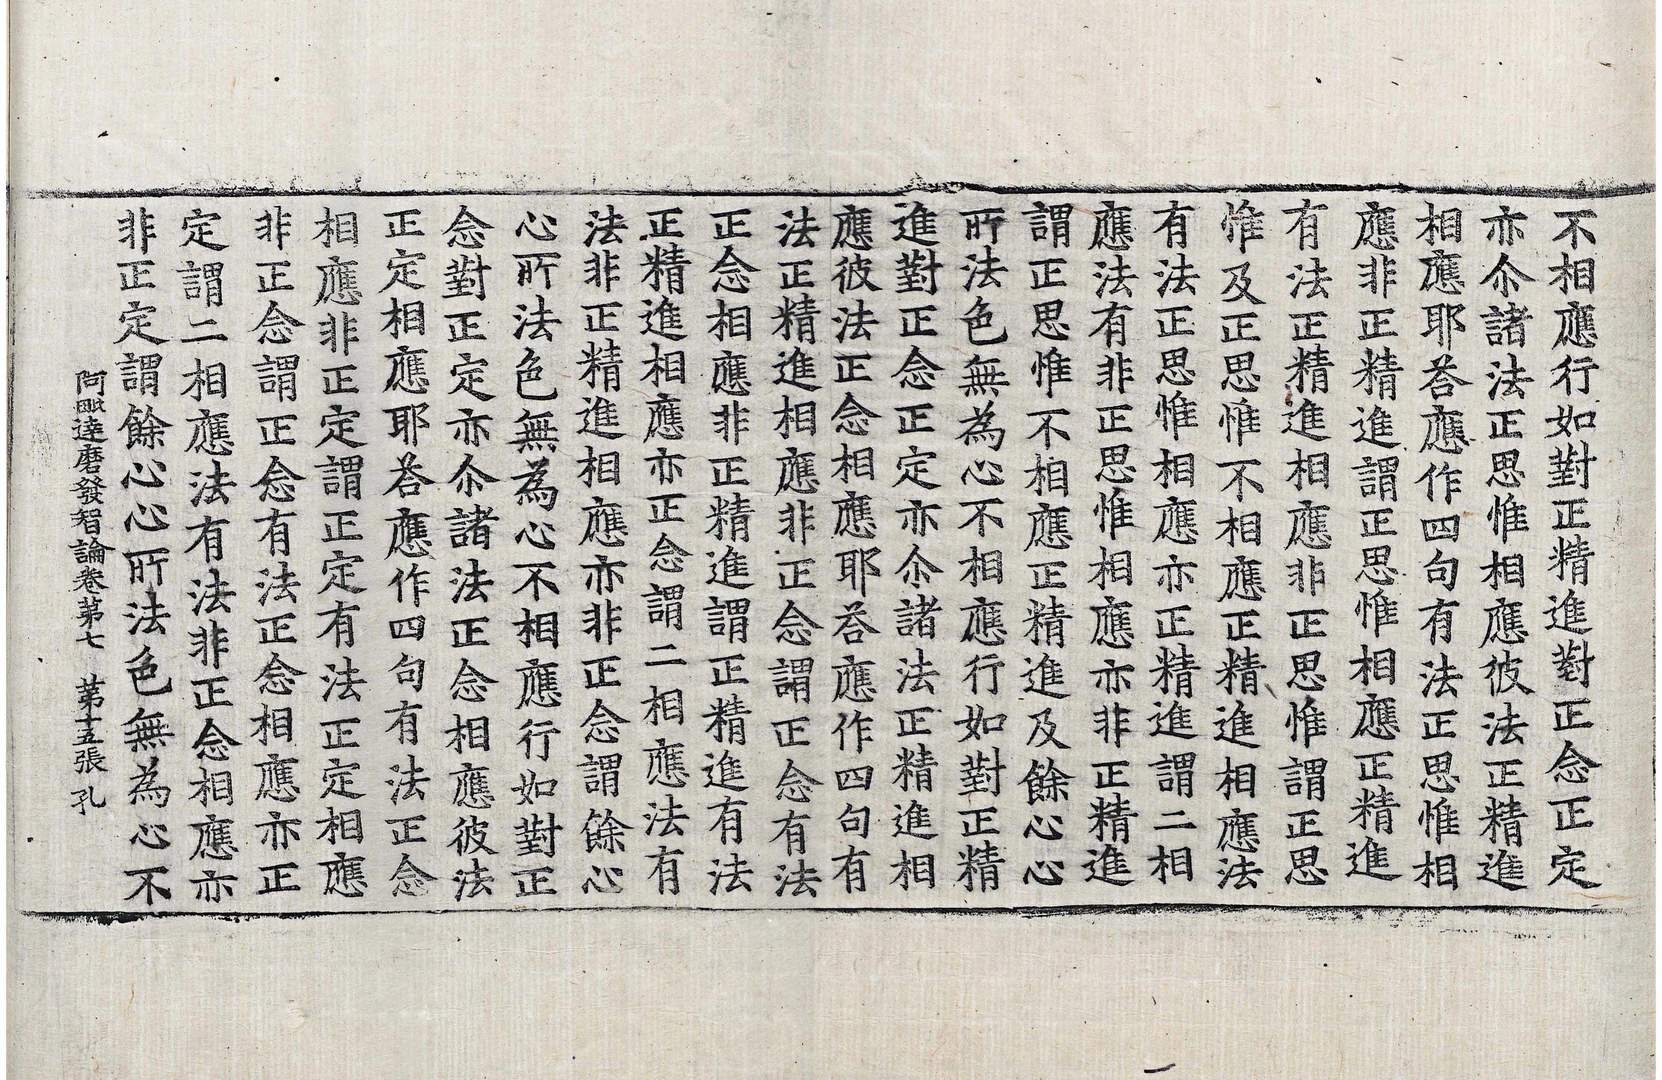 不相應行如對正精進對正念正定
亦尒諸法正思惟相應彼法正精進
相應耶荅應作四句有法正思惟相
應非正精進謂正思惟相應正精進
有法正精進相應非正思惟謂正思
惟及正思惟不相應正精進相應法
有法正思惟相應亦正精進謂二相
應法有非正思惟相應亦非正精進
謂正思惟不相應正精進及餘心心
所法色無為心不相應行如對正精
進對正念正定亦尒諸法正精進相
應彼法正念相應耶荅應作四句有
法正精進相應非正念謂正念有法
正念相應非正精進謂正精進有法
正精進相應亦正念謂二相應法有
法非正精進相應亦非正念謂餘心
心所法色無為心不相應行如對正
念對正定亦尒諸法正念相應彼法
正定相應耶荅應作四句有法正念
相應非正定謂正定有法正定相應
非正念謂正念有法正念相應亦正
定謂二相應法有法非正念相應亦
非正定謂餘心心所法色無為心不
阿毗達磨發智論卷第七 第十五張 孔